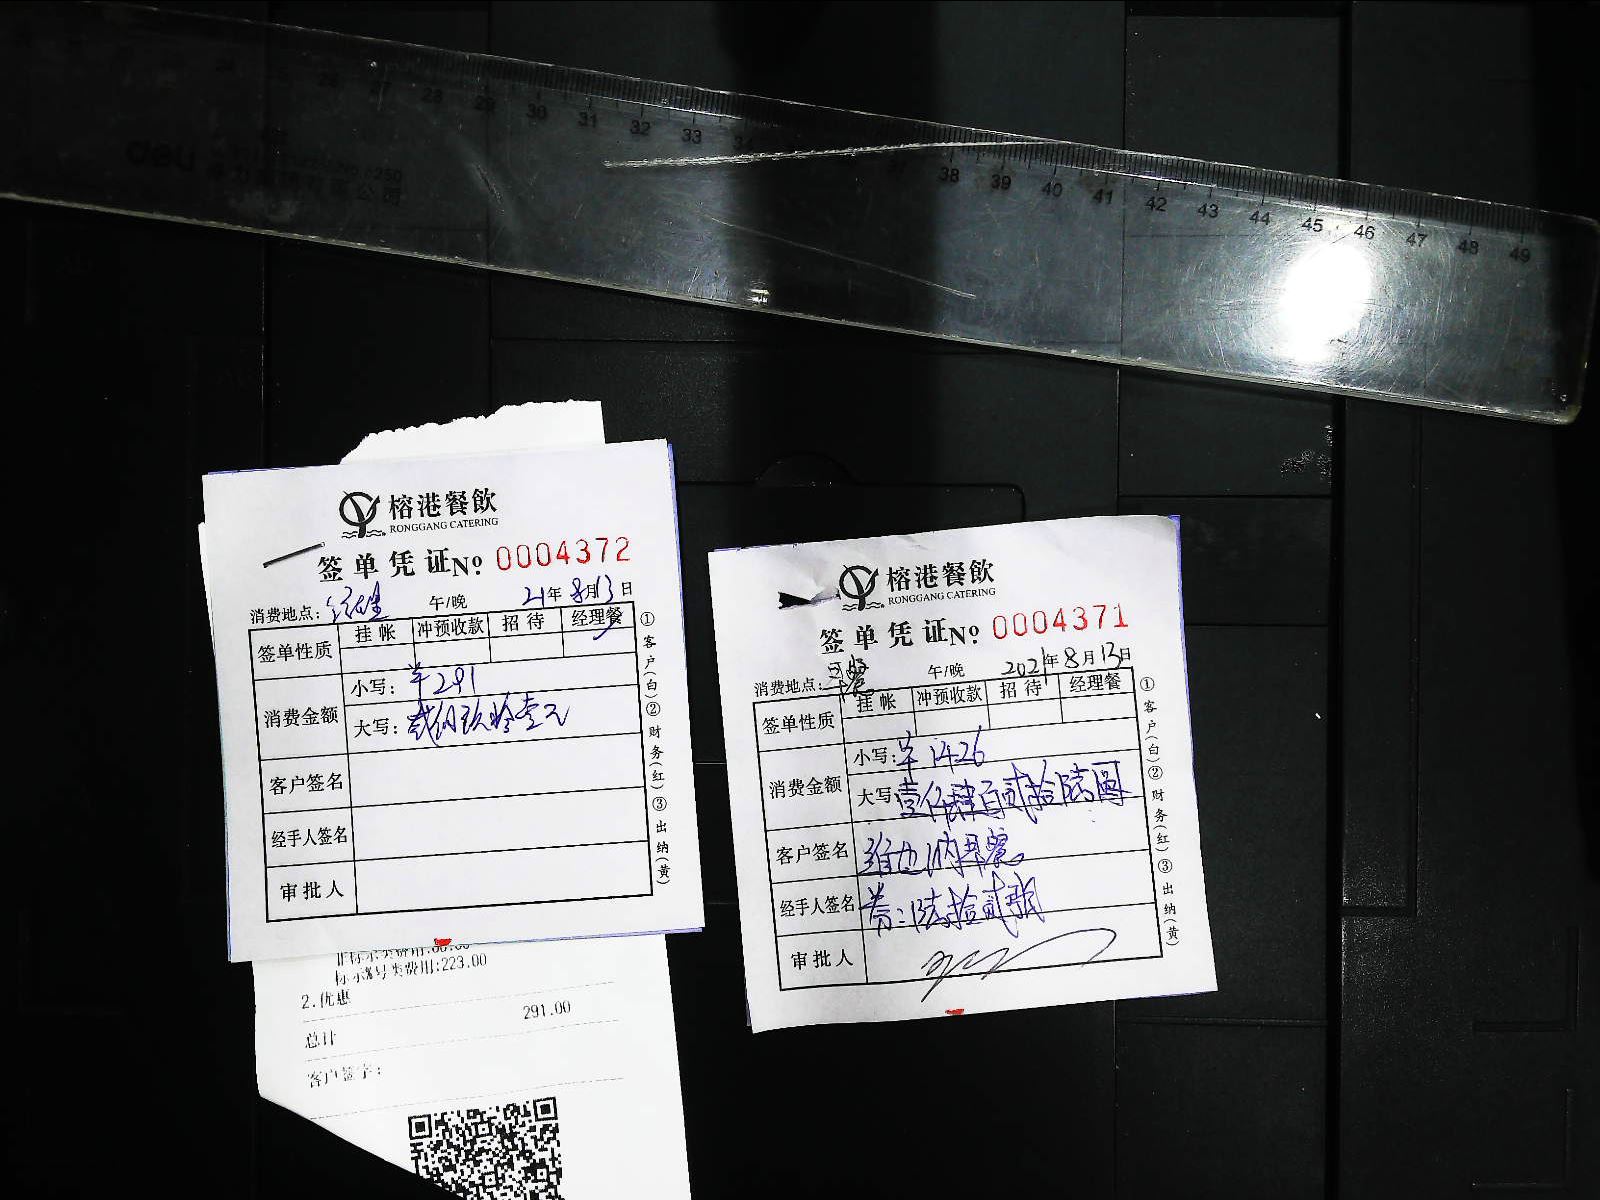 26 27 28 29 30 31 32 33 34 37 38 39 40 41 42 43 44 45 46 47 48 49
deli
榕港餐飲
RONGGANG CATERING
签单凭证No. 0004372
消费地点: 午/晚 21年8月13日
签单性质 挂帐 冲预收款 招待 经理餐
消费金额 小写: ¥291
大写: 贰佰玖拾壹元
客户签名
经手人签名
审批人
①客户(白)②财务(红)③出纳(黄)
标示账号类费用:223.00
2.优惠
291.00
总计
客户签字:
榕港餐飲
RONGGANG CATERING
签单凭证No. 0004371
消费地点: 早餐 午/晚 2021年8月13日
签单性质 挂帐 冲预收款 招待 经理餐
消费金额 小写: ¥1426
大写: 壹仟肆百贰拾陆圆
客户签名 维也纳早餐
经手人签名 券:陆拾贰张
审批人
①客户(白)②财务(红)③出纳(黄)